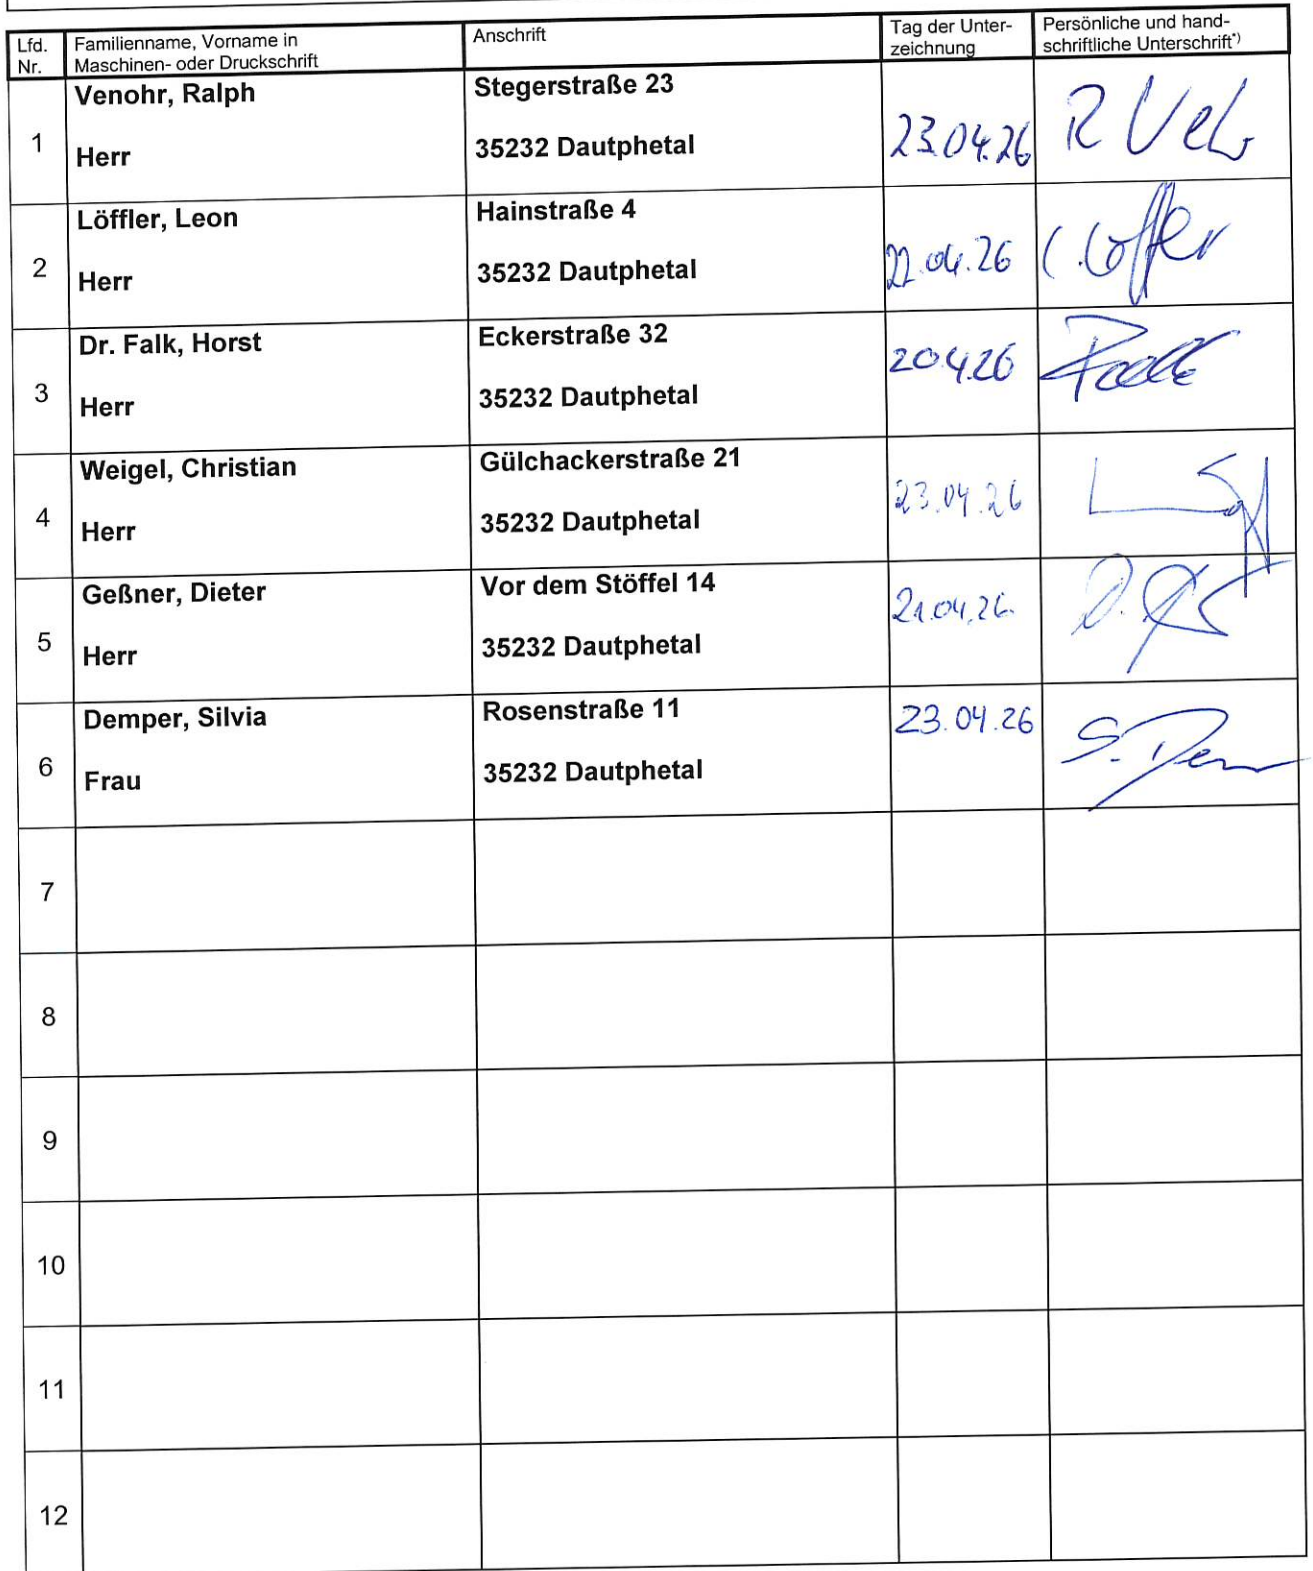 Lfd. Nr.
Familienname, Vorname in Maschinen- oder Druckschrift
Anschrift
Tag der Unter-zeichnung
Persönliche und hand-schriftliche Unterschrift*)
1
Venohr, Ralph
Herr
Stegerstraße 23
35232 Dautphetal
23.04.26
2
Löffler, Leon
Herr
Hainstraße 4
35232 Dautphetal
22.04.26
3
Dr. Falk, Horst
Herr
Eckerstraße 32
35232 Dautphetal
20.4.26
4
Weigel, Christian
Herr
Gülchackerstraße 21
35232 Dautphetal
23.04.26
5
Geßner, Dieter
Herr
Vor dem Stöffel 14
35232 Dautphetal
21.04.26.
6
Demper, Silvia
Frau
Rosenstraße 11
35232 Dautphetal
23.04.26
7
8
9
10
11
12